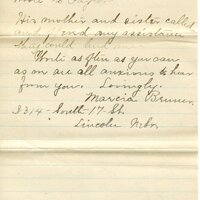 His mother and sister called
and any assistance
they could and
Write as often as you can
as on are all anxious to hear
from you. Lovingly.
Marcia Bruner
1314 - South - 17 St.
Lincoln Nebr.